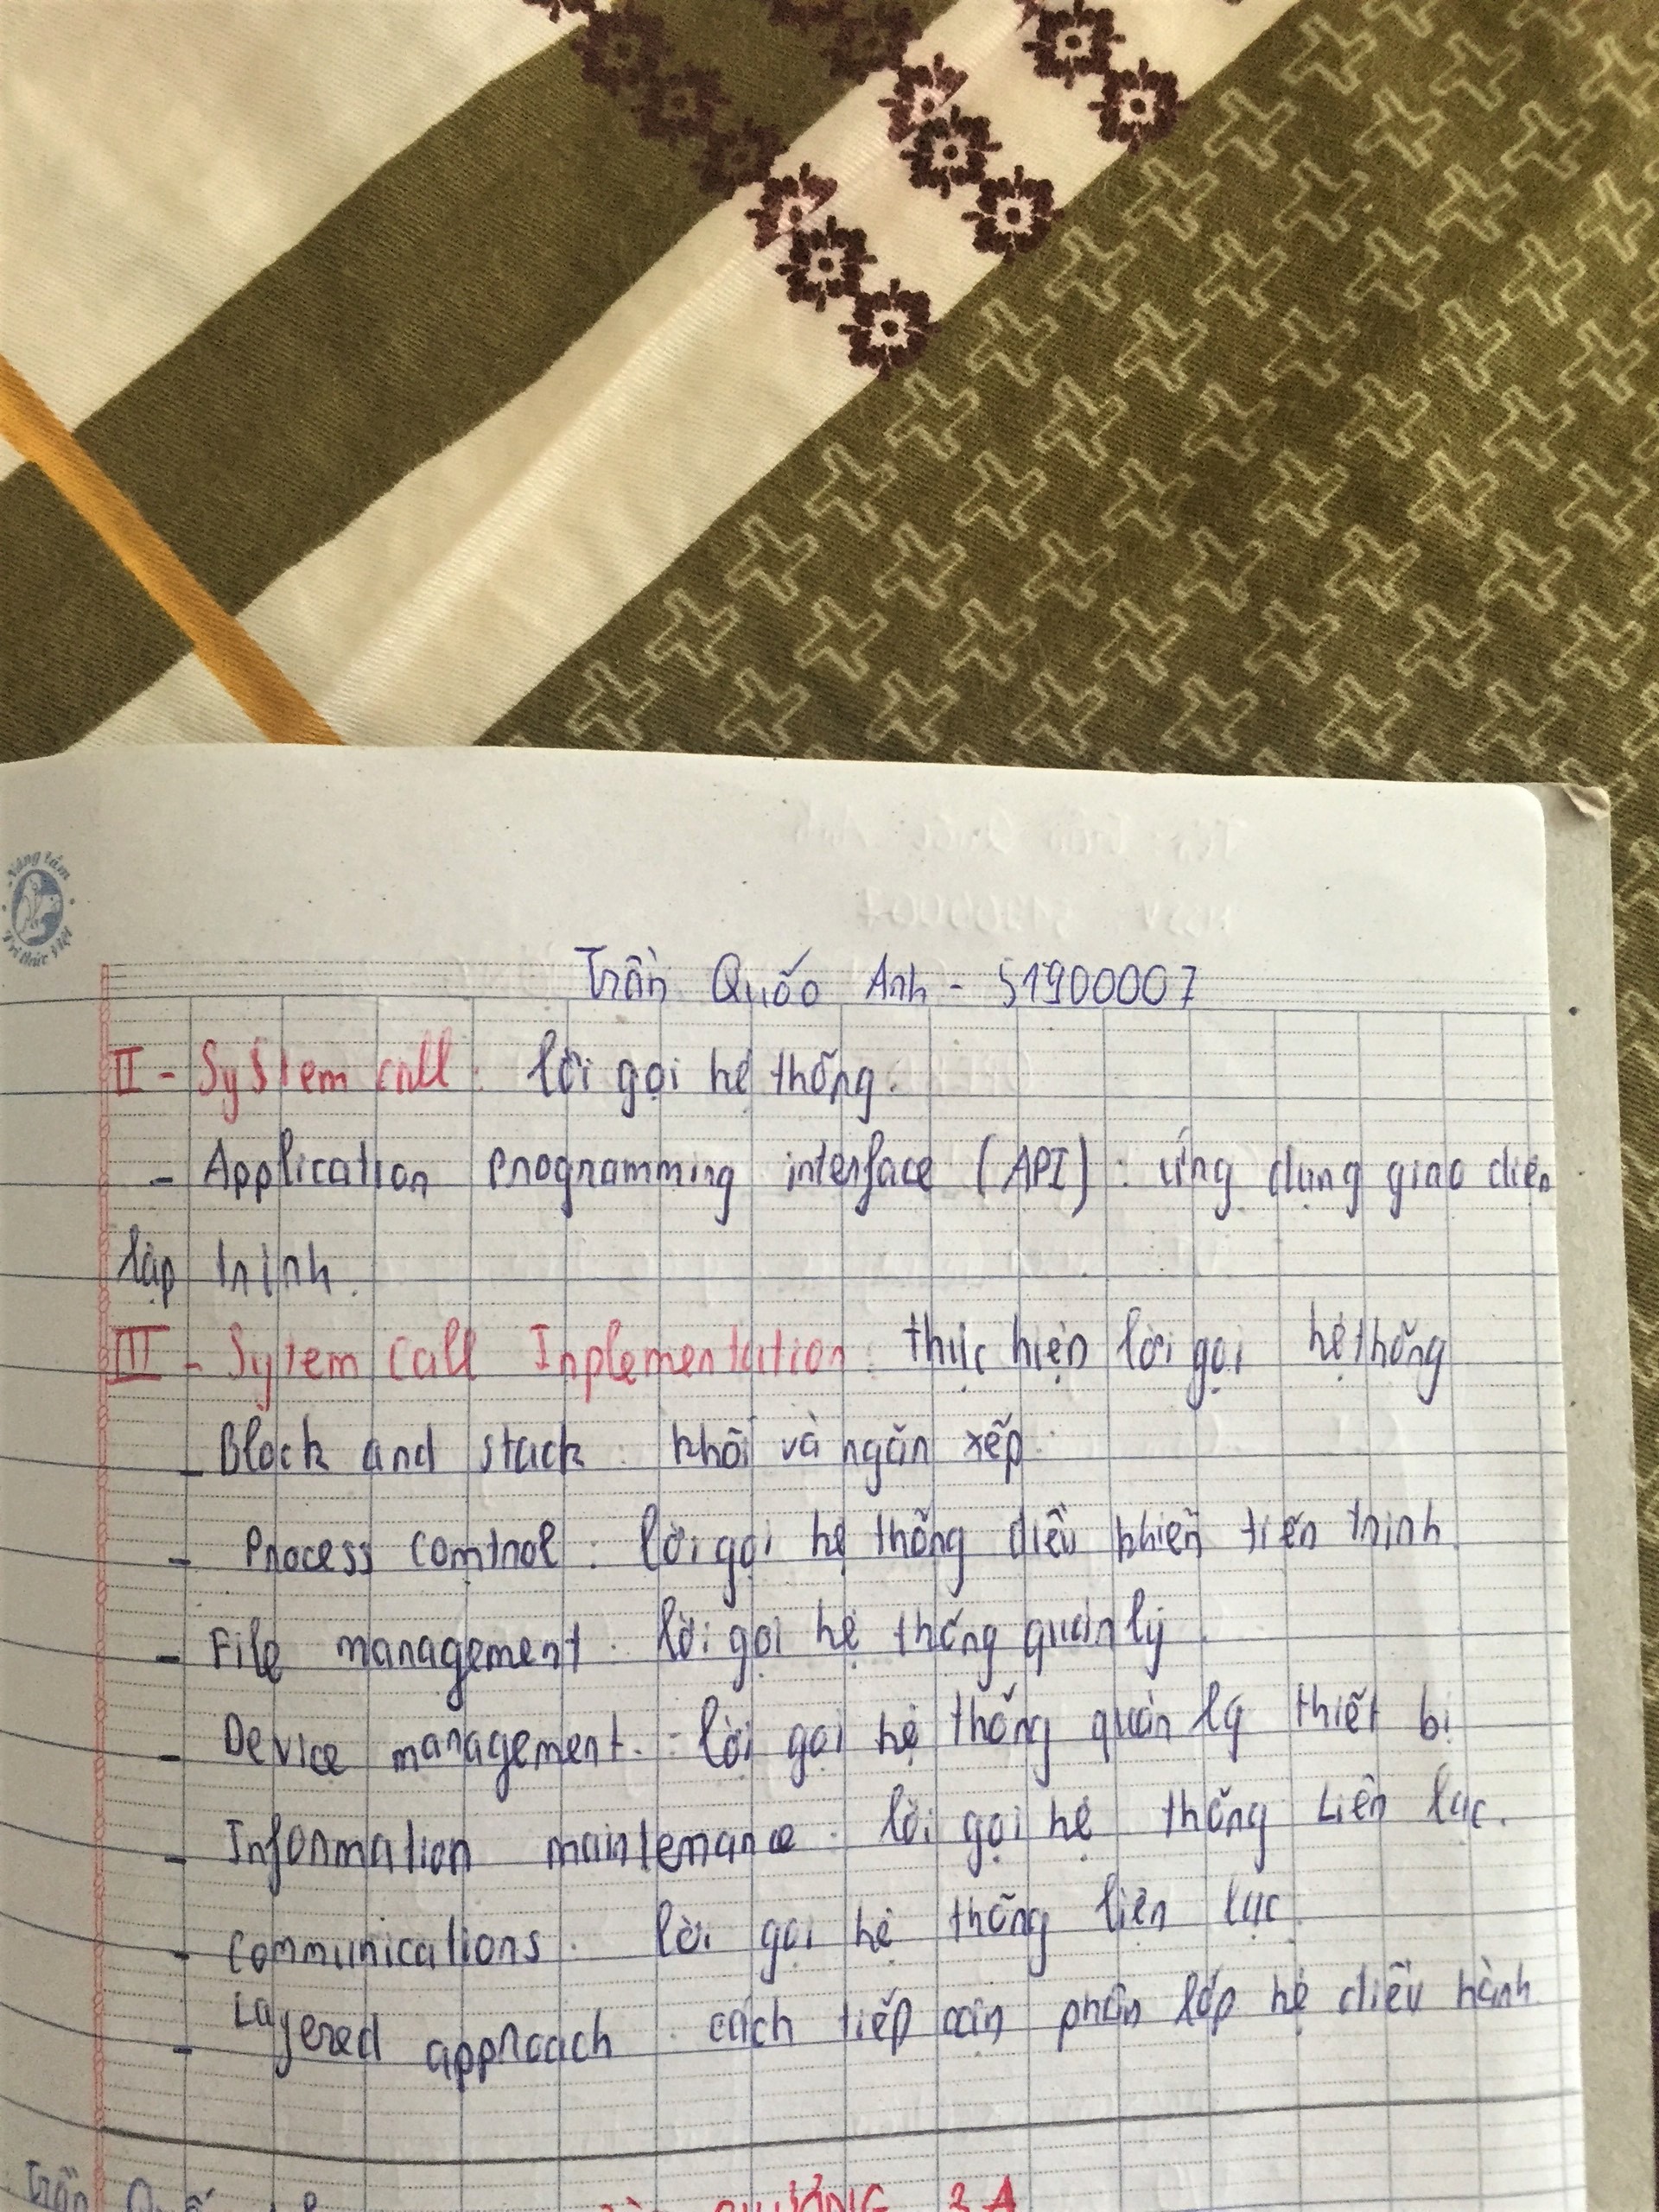 Nâng tầm
Tri thức Việt
Trần Quốc Anh - 51900007
II - System call : lời gọi hệ thống.
- Application programming interface (API) : ứng dụng giao diện
lập trình.
III - Sytem call Inplementation : thực hiện lời gọi hệ thống
- Block and stack : khối và ngăn xếp.
- Process control : lời gọi hệ thống điều khiển tiến trình.
- File management : lời gọi hệ thống quản lý.
- Device management : lời gọi hệ thống quản lý thiết bị
- Information maintenance : lời gọi hệ thống Liên lạc.
- Communications : lời gọi hệ thống liên lạc.
- Layered approach : cách tiếp cận phân lớp hệ điều hành.
Trần
CHƯƠNG 3A